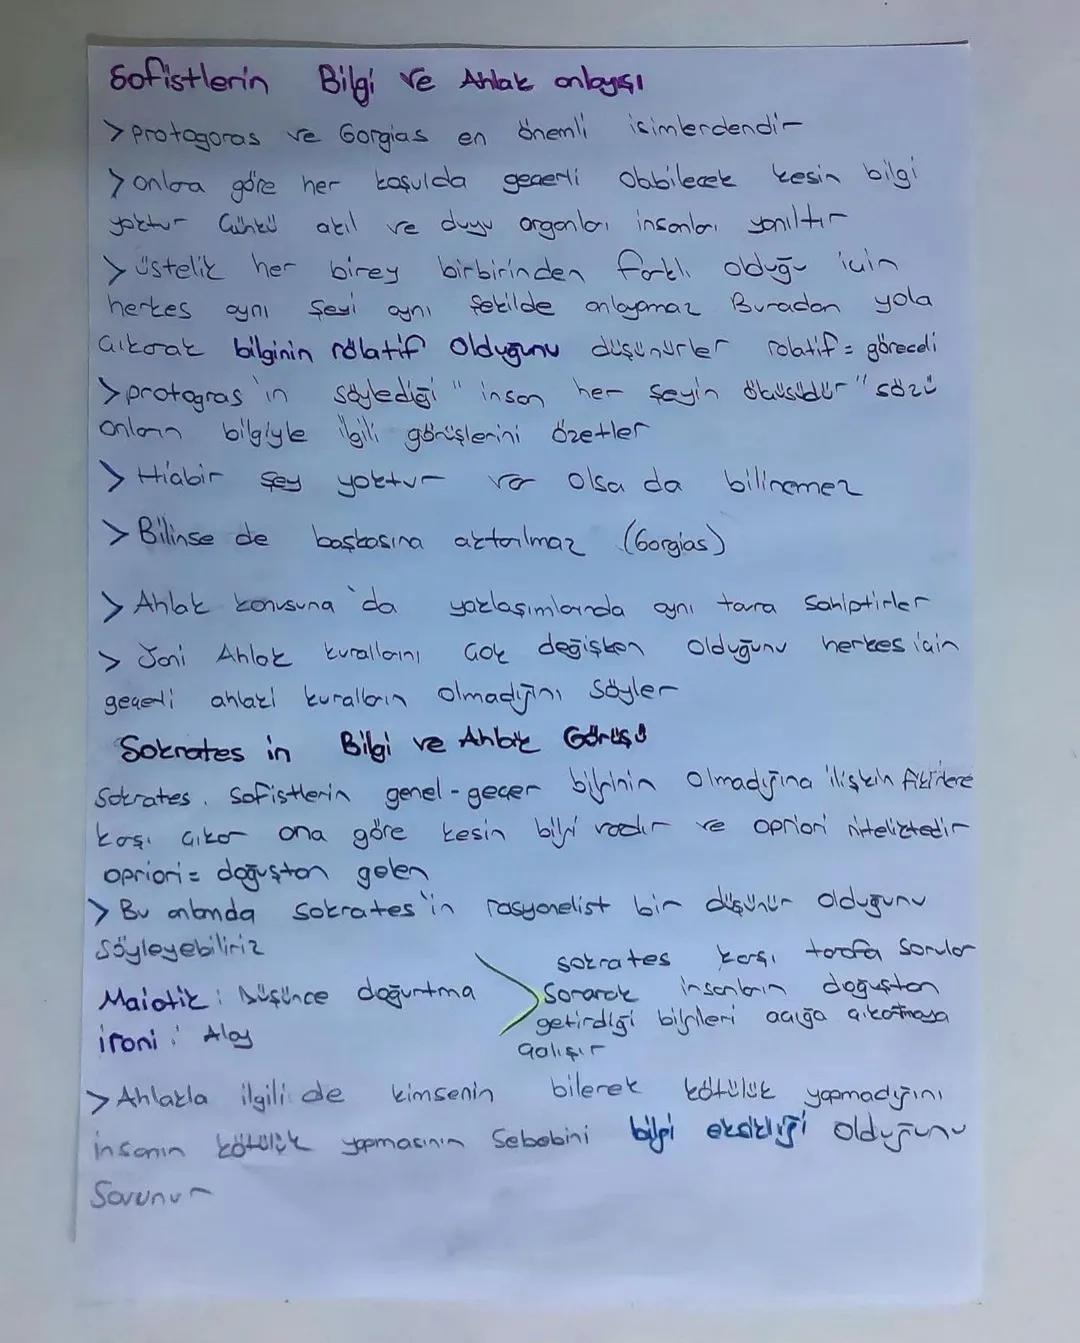 Sofistlerin Bilgi ve Ahlak anlayışı
> protogoras ve Gorgias en önemli isimlerdendir
> onlara göre her koşulda geçerli olabilecek kesin bilgi
yoktur Çünkü akıl ve duyu organları insanları yanıltır
> üstelik her birey birbirinden farklı olduğu için
herkes aynı şeyi aynı şekilde anlayamaz Buradan yola
çıkarak bilginin rölatif olduğunu düşünürler rolatif = göreceli
> protogras'ın söylediği "insan her şeyin ölçüsüdür" sözü
onların bilgiyle ilgili görüşlerini özetler
> Hiçbir şey yoktur var olsa da bilinemez
> Bilinse de başkasına aktarılmaz (Gorgias)
> Ahlak konusuna'da yaklaşımlarında aynı tavra sahiptirler
> Yani Ahlak kurallarını çok değişken olduğunu herkes için
geçerli ahlaki kuralların olmadığını söyler
Sokrates in Bilgi ve Ahlak Görüşü
Sokrates. Sofistlerin genel-geçer bilginin olmadığına ilişkin fikirlere
karşı çıkar ona göre kesin bilgi vardır ve apriori niteliktedir
apriori = doğuştan gelen
> Bu anlamda Sokrates'in rasyonelist bir düşünür olduğunu
söyleyebiliriz
Maiotik : Düşünce doğurtma
ironi : Alay
sokrates karşı tarafa sorular
Sorarak insanların doğuştan
getirdiği bilgileri açığa çıkartmaya
çalışır
> Ahlakla ilgili de kimsenin bilerek kötülük yapmadığını
insanın kötülük yapmasının Sebebini bilgi eksikliği olduğunu
Savunur